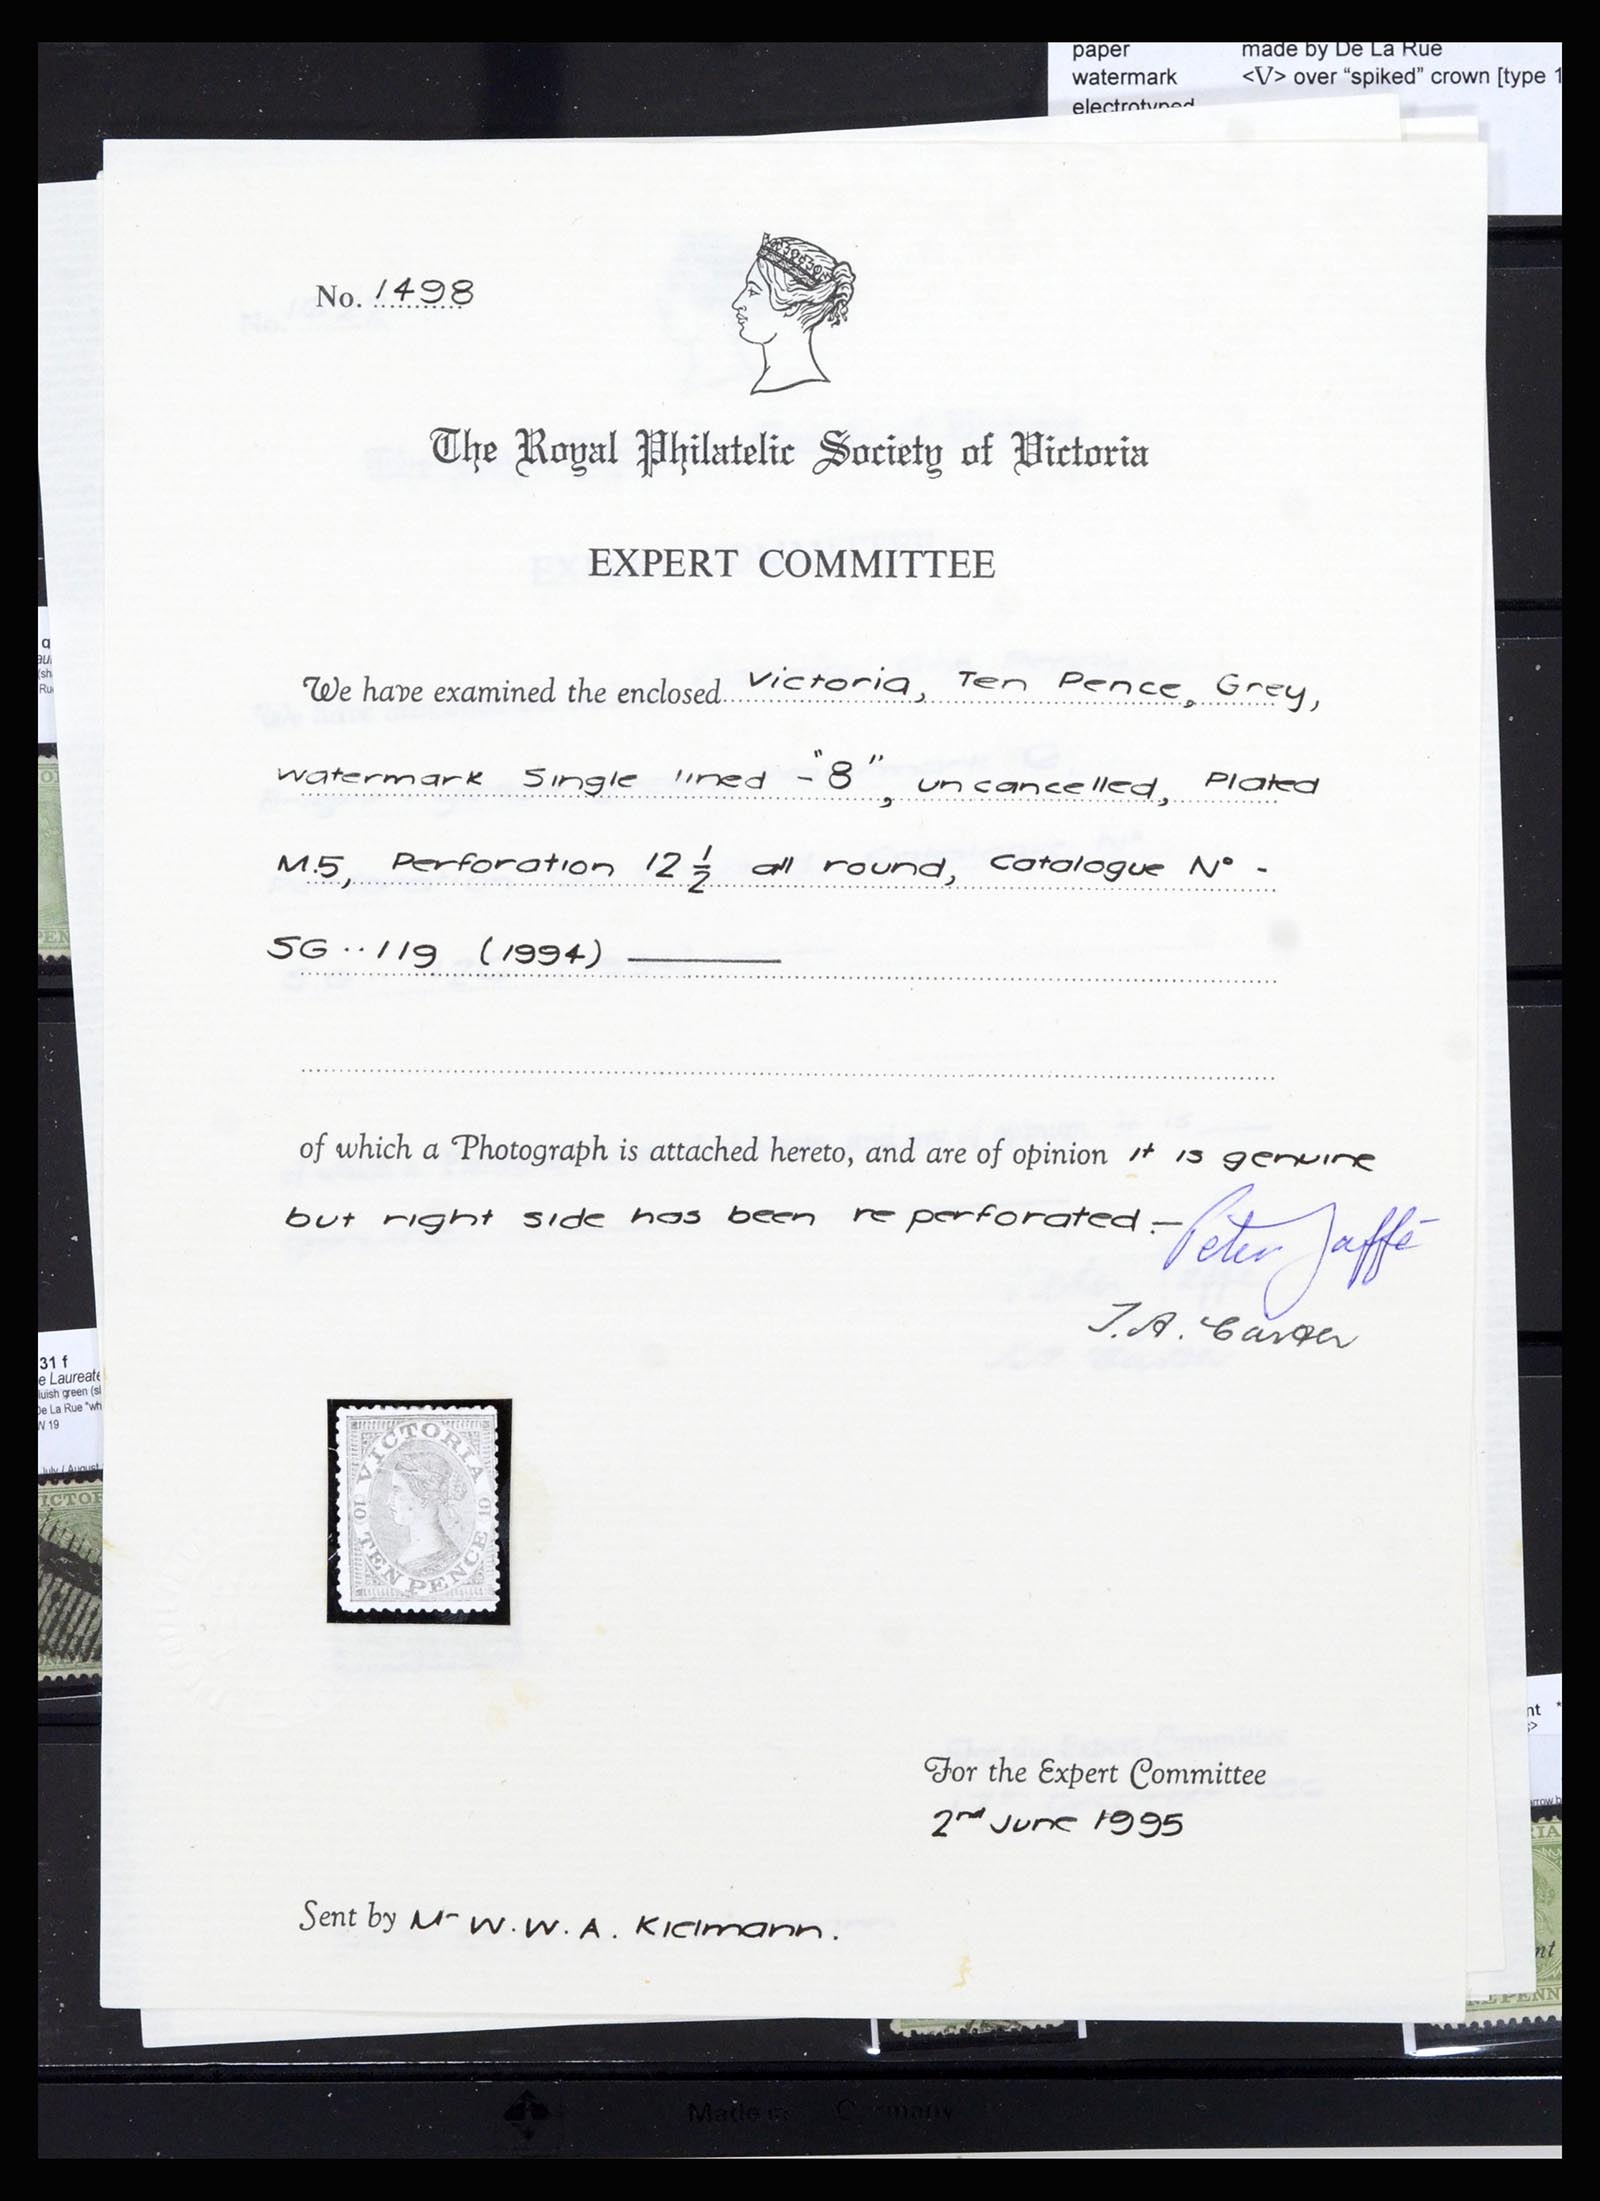 paper made by De La Rue
watermark <V> over “spiked” crown [type 1
electrotyped
No. 1498
The Royal Philatelic Society of Victoria
EXPERT COMMITTEE
We have examined the enclosed Victoria, Ten Pence, Grey,
Watermark Single lined - "8", uncancelled, Plated
M.5, Perforation 12 1/2 all round, Catalogue Nº -
SG 119 (1994)
of which a Photograph is attached hereto, and are of opinion it is genuine
but right side has been reperforated.
Peter Jaffé
31 f
e Laureate
uish green (sl
De La Rue "wh
W 19
July / August
VICTORIA
10 10
TEN PENCE
For the Expert Committee
2nd June 1995
Sent by Mr W.W.A. Kielmann.
Made in Germany